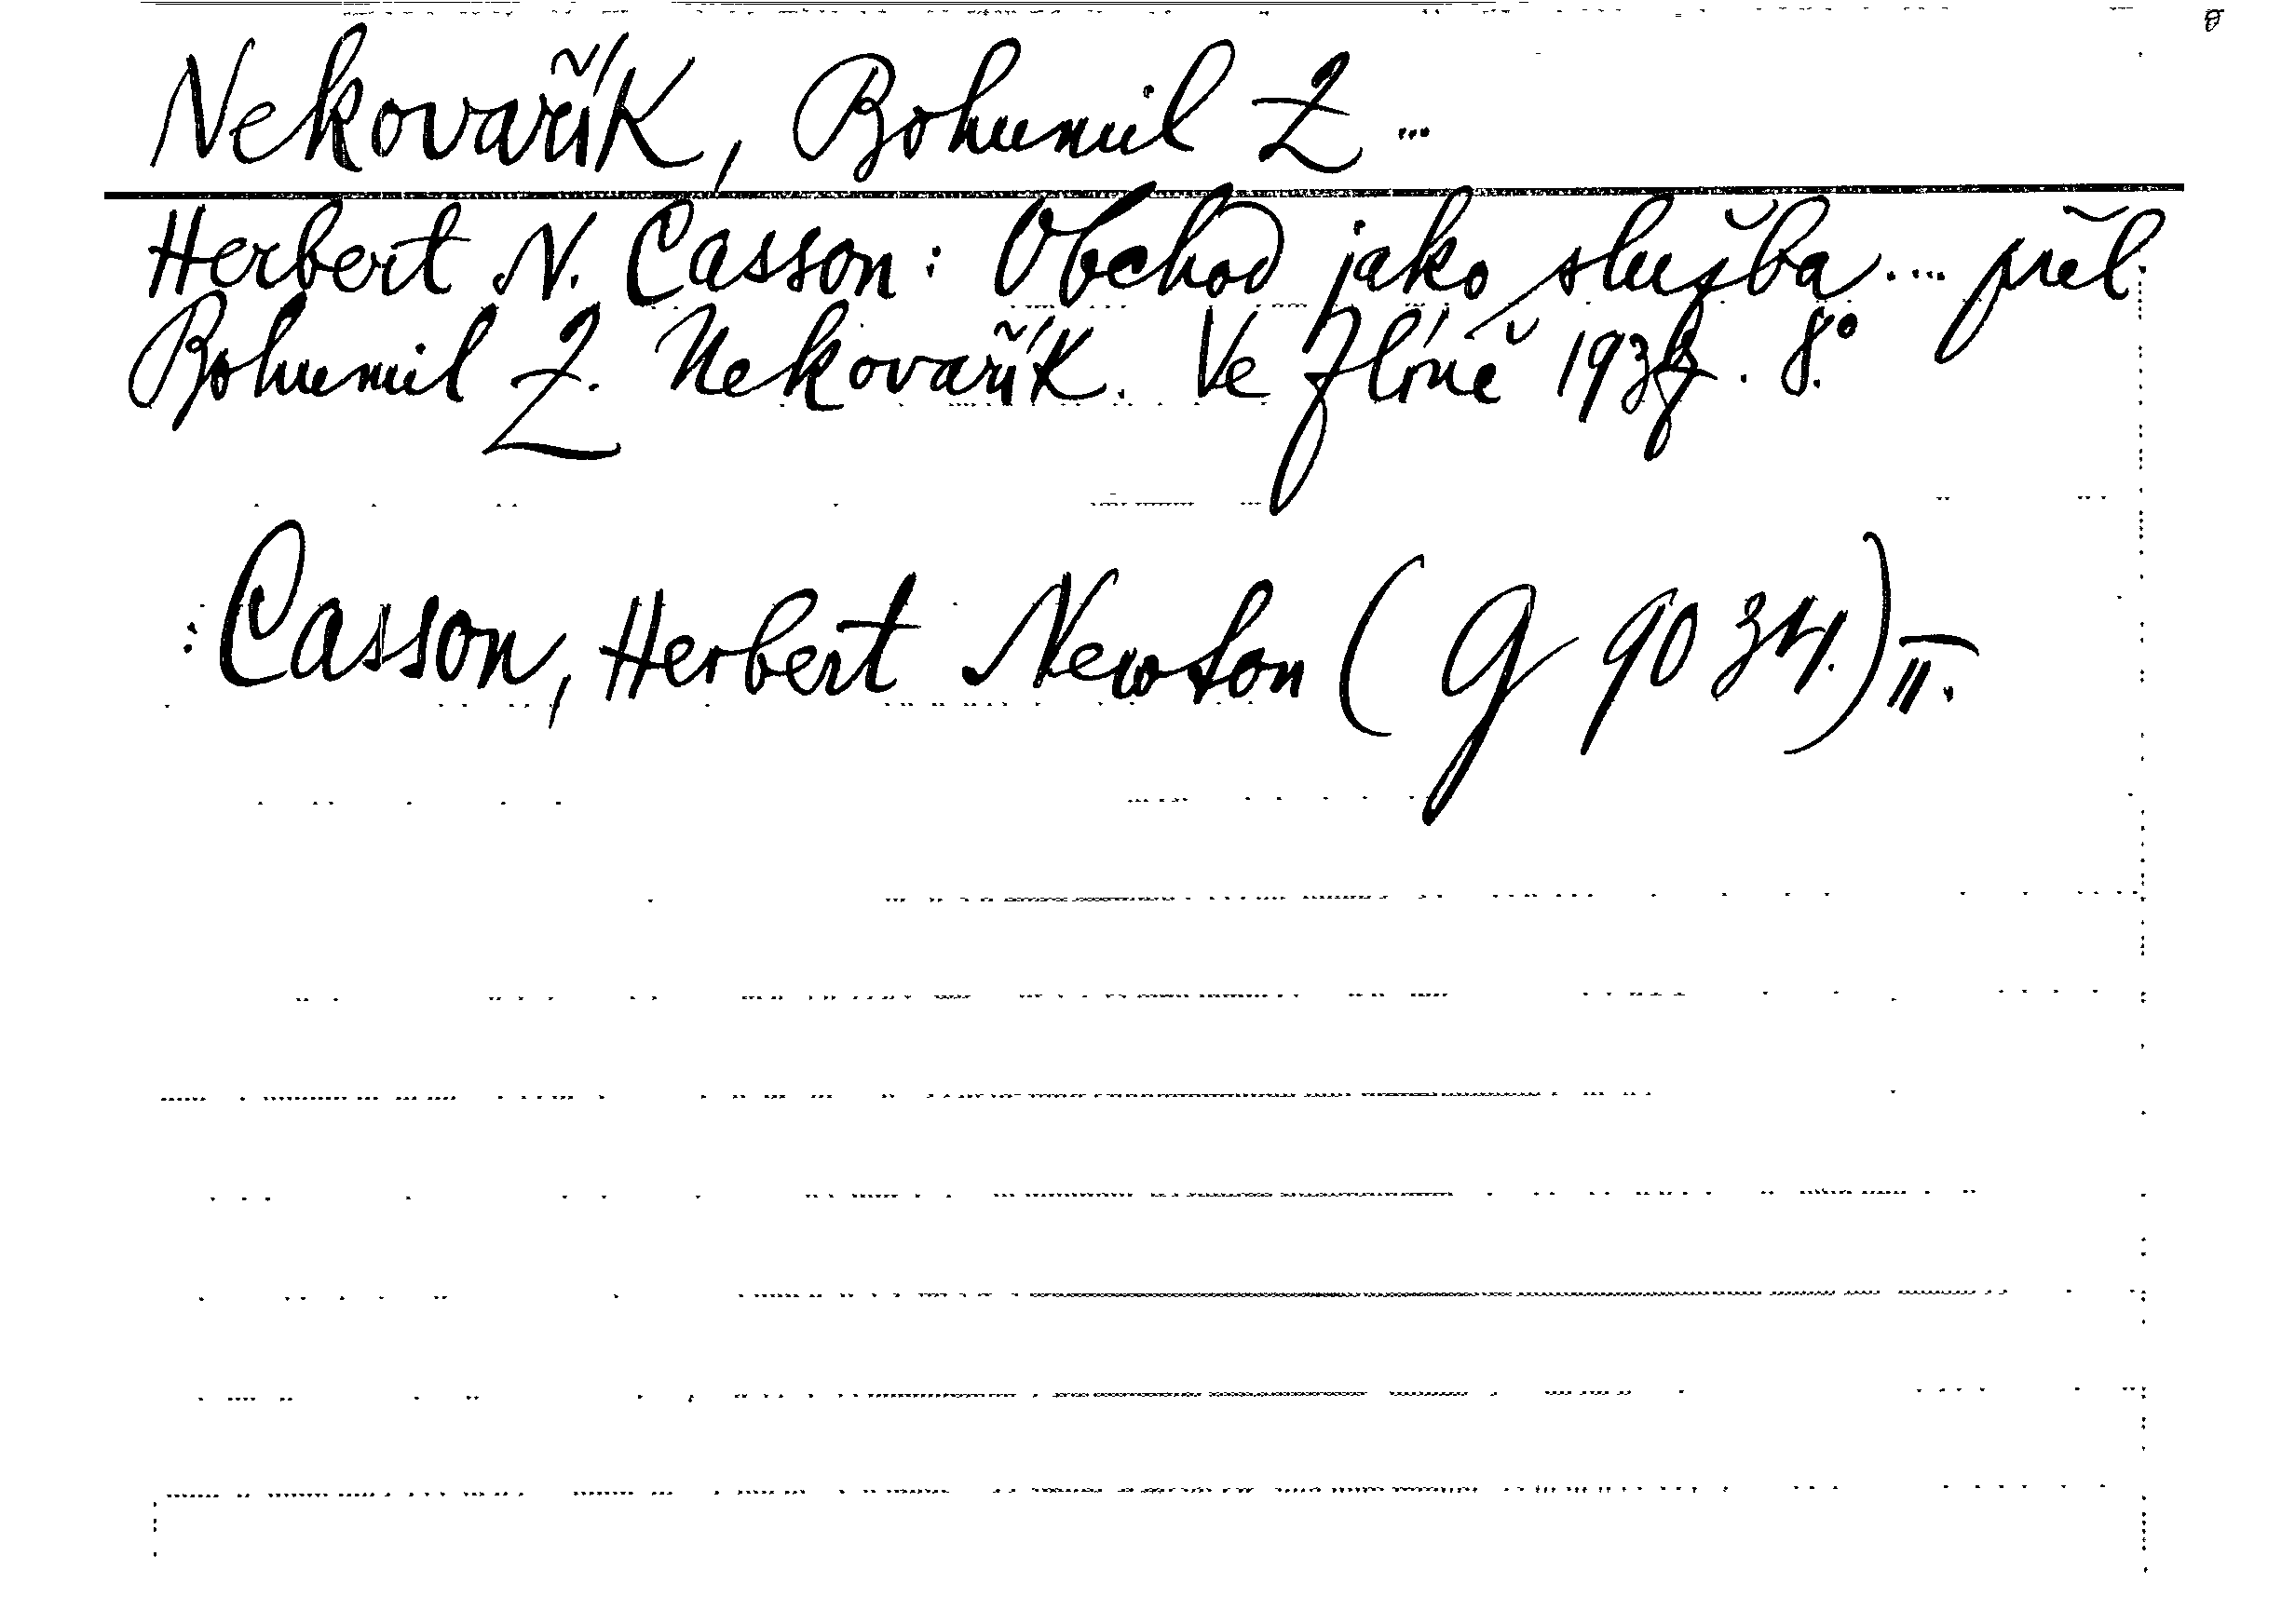 Nekovařík, Bohumil Z ...
Herbert N. Casson: Obchod jako služba ... přel.
Bohumil Z. Nekovařík. Ve Zlíně 1937. 8°.
: Casson, Herbert Newton (G 9034.) II.